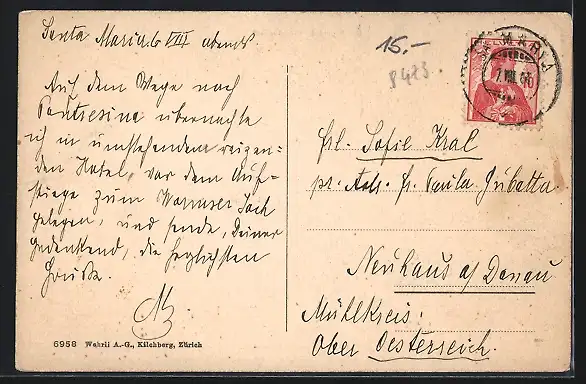 Santa Maria 6 VIII abends
15.-
8423
Auf dem Wege nach
Pontresina übernachte
ich in umstehendem reizen=
den Hotel, vor dem Auf=
stiege zum Wormser Joch
gelegen, und sende, Deiner
gedenkend, die herzlichsten
Grüße.
6958 Wehrli A.-G., Kilchberg, Zürich
HELVETIA
10
MARIA
7.VIII.
Frl. Sofie Kral
pr. Adr. Fr. Paula Gubatta
Neuhaus a/ Donau
Mühlkreis.
Ober Oesterreich.